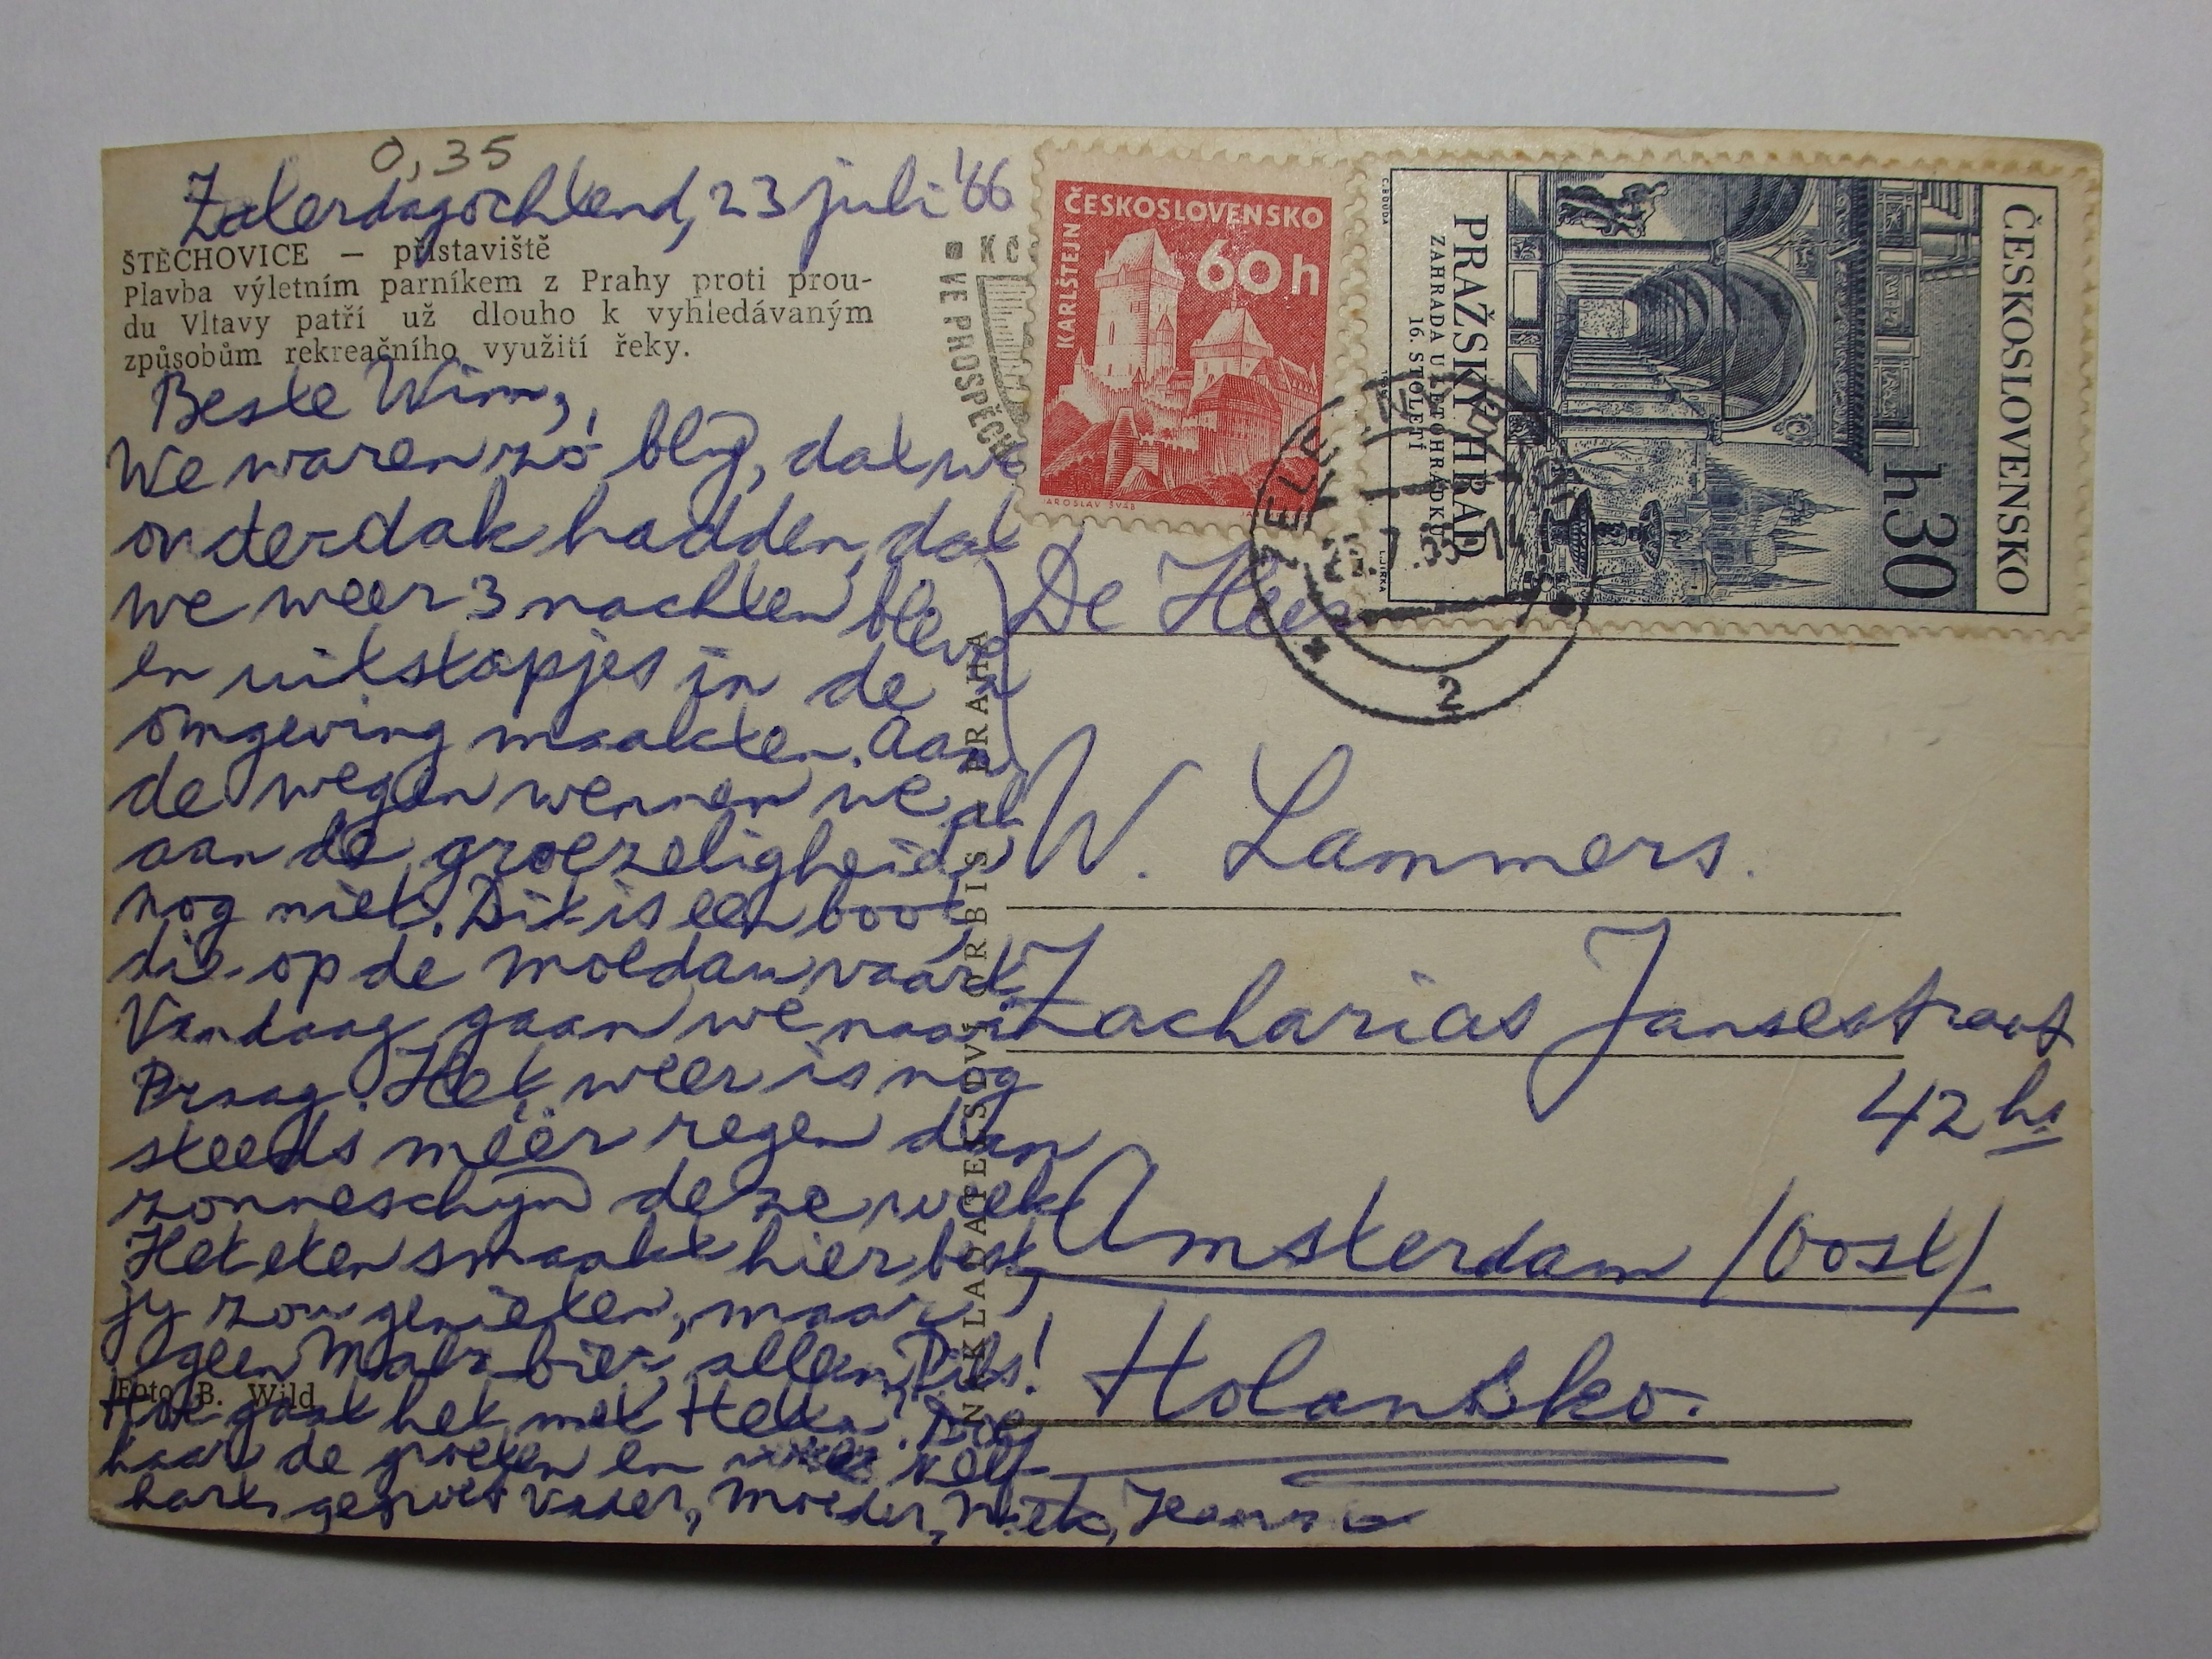 0,35
Zaterdagochtend, 23 juli '66
ŠTĚCHOVICE — přístaviště
Plavba výletním parníkem z Prahy proti prou-
du Vltavy patří už dlouho k vyhledávaným
způsobům rekreačního využití řeky.
Beste Wim,
We waren zó blij, dat we
onderdak hadden, dat
we weer 3 nachten bleven
en uitstapjes in de
omgeving maakten. Aan
de wegen wennen we al
aan de groezeligheid
nog niet. Dit is een boot,
die op de Moldau vaart.
Vandaag gaan we naar
Praag. Het weer is nog
steeds méér regen dan
zonneschijn deze week
Het eten smaakt hier best,
jy zou genieten, maar
geen Malz-bier, alleen Pils!
Foto B. Wild
Hoe gaat het met Hetta? Doe
haar de groeten en zelf
hart. gegroet Vader, Moeder, Niek, Jeanne
NAKLADATELSTVÍ ORBIS — PRAHA
KČ
VE PROSPĚCH
ČESKOSLOVENSKO
60 h
KARLŠTEJN
JAROSLAV ŠVÁB
ČESKOSLOVENSKO
h30
PRAŽSKÝ HRAD
ZAHRADA U LETOHRÁDKU
16. STOLETÍ
L. JIRKA
2
De Heer
W. Lammers.
Zacharias Jansestraat
42 hs
Amsterdam /Oost/.
Holandsko.